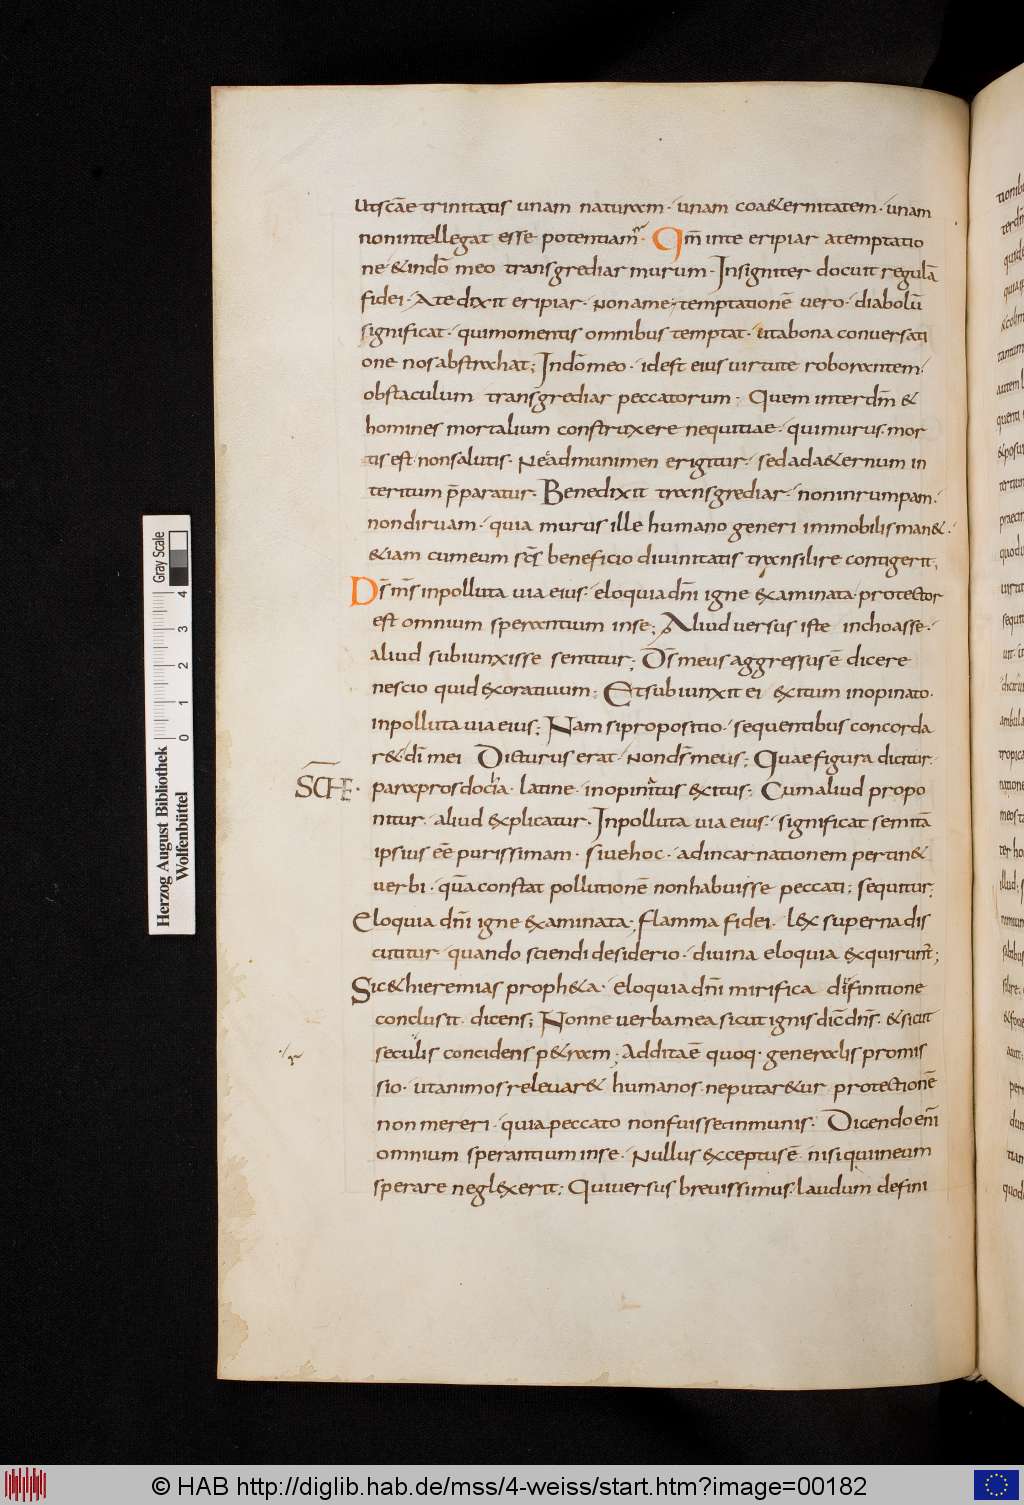 Utscāe trinitatis unam naturam · unam coa&ernitatem · unam
non intellegat esse potentiam · Qm̄ in te eripiar a temptatio
ne · & in dō meo transgrediar murum · Insigniter docuit regulā
fidei · A te dixit eripiar · Non a me ; temptationē vero · diabolū
significat · qui momentis omnibus temptat · ut a bona conversati
one nos abstrahat ; In dō meo · id est eius virtute roborantem ·
obstaculum transgrediar peccatorum ; Quem interdm̄ &
homines mortalium construxere nequitiae · qui murus · mor
tis est · non salutis · Ne ad munimen erigitur · sed ad a&ernum in
teritum p̄paratur · Bene dixit transgrediar · non inrumpam ·
non diruam · quia murus ille humano generi immobilis man& ·
&iam cum eum sc̄s beneficio divinitatis transilire contigerit ;
Ds̄ ms̄ inpolluta via eius · eloquia dn̄i igne examinata · protector
est omnium sperantium in se ; Aliud versus iste inchoasse ·
aliud subiunxisse sentitur ; Ds̄ meus aggressus ē dicere
nescio quid exorativum ; Et subiunxit ei exitum inopinato ·
inpolluta via eius ; Nam si propositio · sequentibus concorda
r& dī mei Dicturus erat · Non ds̄ meus ; Quae figura dicitur ·
SCHE ·
paraprosdocia · latine · inopinatus exitus ; Cum aliud propo
nitur · aliud explicatur · Inpolluta via eius · significat semitā
ipsius eē purissimam · sive hoc · ad incarnationem pertin&
verbi · quā constat pollutionē non habuisse peccati ; sequitur ;
Eloquia dn̄i igne examinata · flamma fidei · lex superna dis
cutitur · quando sciendi desiderio · divina eloquia exquirunt ;
Sic & hieremias proph&a · eloquia dn̄i mirifica difinitione
conclusit dicens ; Nonne verba mea sicut ignis dic̄ dn̄s · & sicut
seculis concidens p&ram ; Addita ē quoq · generalis promis
sio · ut animos relevar& humanos · ne putar&ur protectionē
non mereri · quia peccato non fuisset inmunis · Dicendo en̄i
omnium sperantium in se · Nullus exceptus ē · nisi qui in eum
sperare neglexerit ; Qui versus brevissimus · laudum defini
Gray Scale
4 3 2 1 0
Herzog August Bibliothek
Wolfenbüttel
© HAB http://diglib.hab.de/mss/4-weiss/start.htm?image=00182